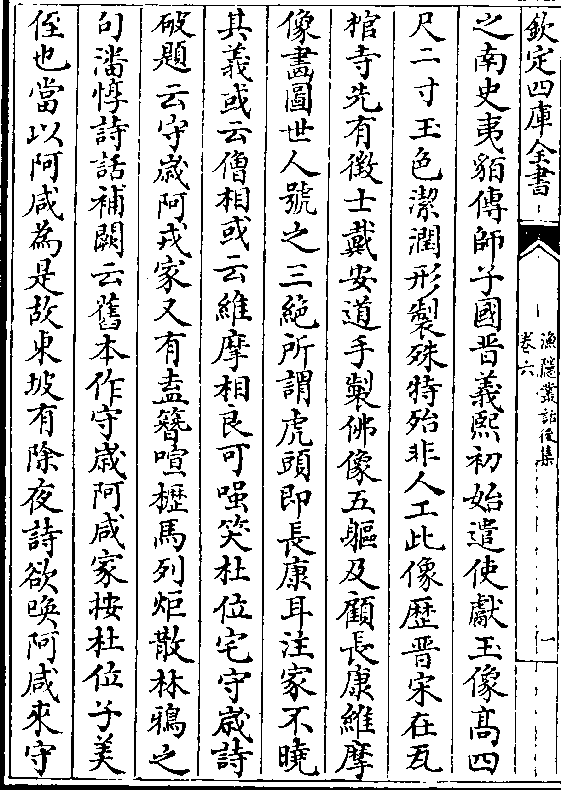 欽定四庫全書
漁隱叢話後集
卷六
一
之南史夷貊傳師子國晋義熙初始遣使獻玉像高四
尺二寸玉色潔潤形製殊特殆非人工此像歴晋宋在瓦
棺寺先有徵士戴安道手製佛像五軀及顧長康維摩
像畵圖世人號之三絶所謂虎頭即長康耳注家不曉
其義或云僧相或云維摩相良可嗤笑杜位宅守歲詩
破題云守歳阿戎家又有盍簪喧櫪馬列炬散林鴉之
句潘惇詩話補闕云舊本作守歳阿咸家按杜位子美
侄也當以阿咸為是故東坡有除夜詩欲喚阿咸來守